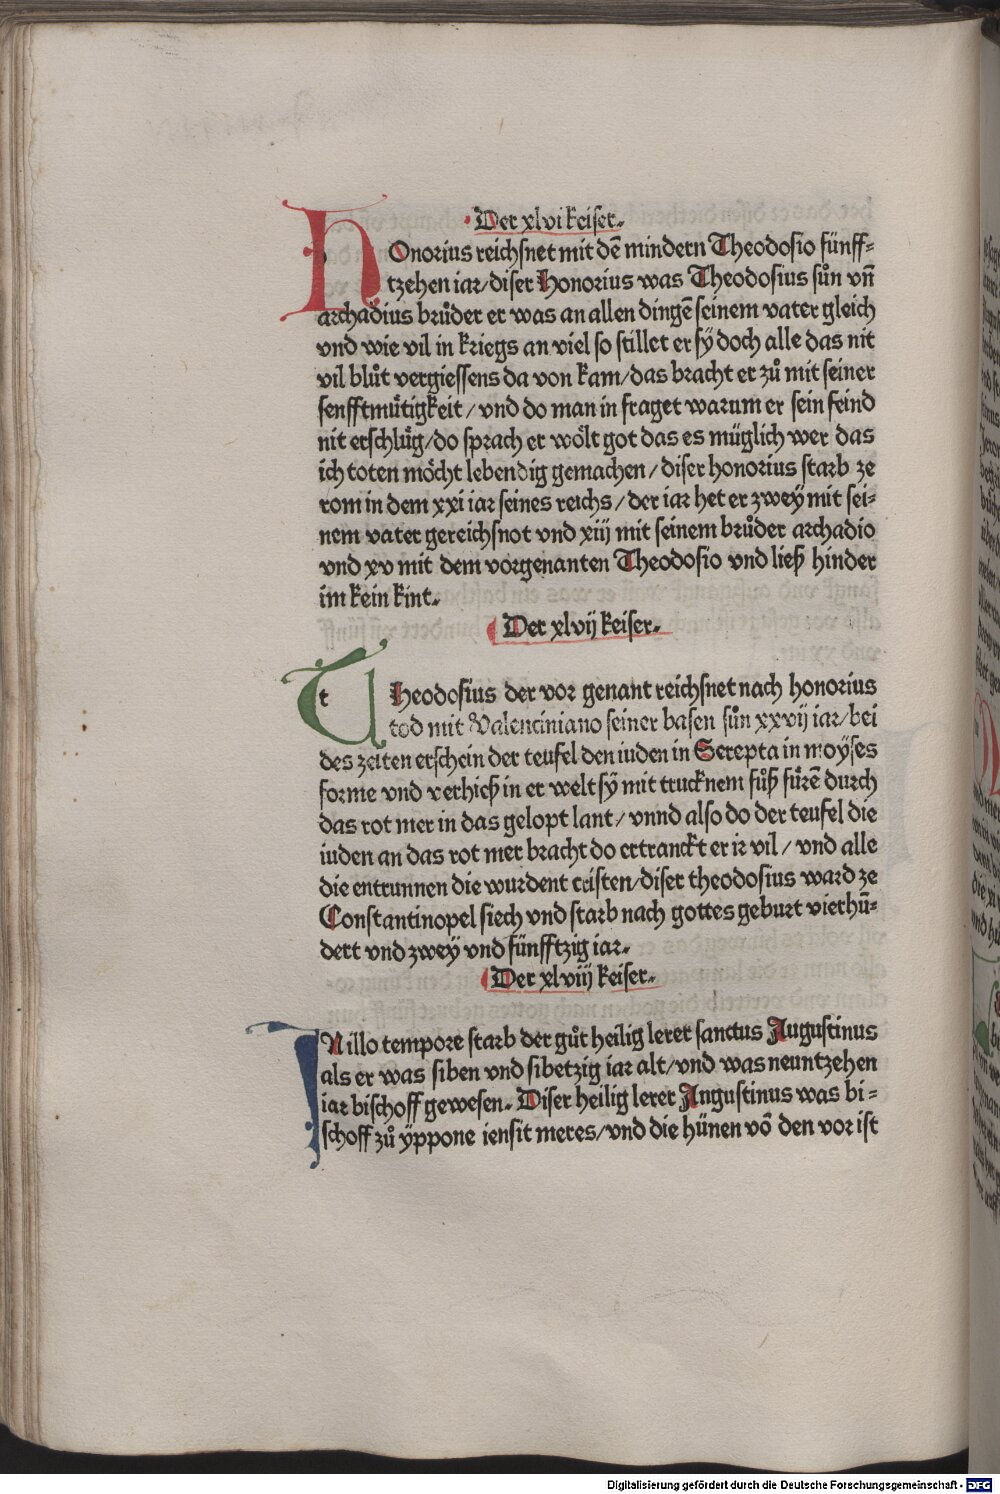 Der xlvi keiser.
HOnorius reichsnet mit dē mindern Theodosio fünff⸗
tzehen iar/diser Honorius was Theodosius sůn vn̄
archadius brůder er was an allen dingē seinem vater gleich
vnd wie vil in kriegs an viel so stillet er sÿ doch alle das nit
vil blůt vergiessens da von kam/das bracht er zů mit seiner
senfftmůtigkeit/vnd do man in fraget warum er sein feind
nit erschlůg/do sprach er wölt got das es müglich wer das
ich toten möcht lebendig gemachen/diser honorius starb ze
rom in dem xxi iar seines reichs/der iar het er zweÿ mit sei⸗
nem vater gereichsnot vnd xiij mit seinem brůder archadio
vnd xv mit dem vorgenanten Theodosio vnd ließ hinder
im kein kint.
Der xlvij keiser.
THeodosius der vor genant reichsnet nach honorius
tod mit Valenciniano seiner basen sůn xxvij iar/bei
des zeiten erschein der teufel den iuden in Serepta in moÿses
forme vnd verhieß in er welt sÿ mit trucknem fůß fůrē durch
das rot mer in das gelopt lant/vnnd also do der teufel die
iuden an das rot mer bracht do ertranckt er ir vil/vnd alle
die entrunnen die wurdent cristen/diser theodosius ward ze
Constantinopel siech vnd starb nach gottes geburt vierhū⸗
dert vnd zweÿ vnd fünfftzig iar.
Der xlviij keiser.
IN illo tempore starb der gůt heilig lerer sanctus Augustinus
als er was siben vnd sibetzig iar alt/vnd was neuntzehen
iar bischoff gewesen. Diser heilig lerer Angustinus was bi⸗
schoff zů ÿppone iensit meres/vnd die hünen vō den vor ist
Digitalisierung gefördert durch die Deutsche Forschungsgemeinschaft - DFG